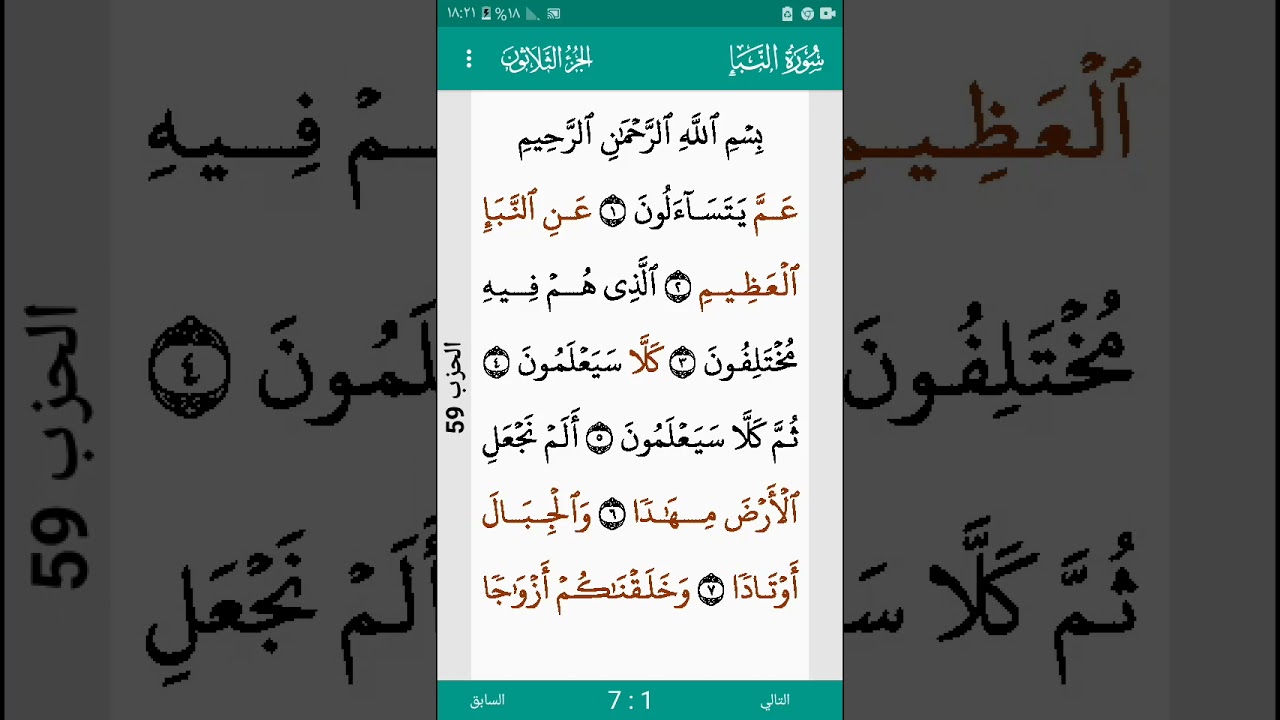 ١٨:٢١ ١٨%
سُورَةُ النَّبَإِ الجُزْءُ الثَّلَاثُونَ
بِسۡمِ ٱللَّهِ ٱلرَّحۡمَٰنِ ٱلرَّحِيمِ
عَمَّ يَتَسَآءَلُونَ ١ عَنِ ٱلنَّبَإِ
ٱلۡعَظِيمِ ٢ ٱلَّذِي هُمۡ فِيهِ
مُخۡتَلِفُونَ ٣ كَلَّا سَيَعۡلَمُونَ ٤
ثُمَّ كَلَّا سَيَعۡلَمُونَ ٥ أَلَمۡ نَجۡعَلِ
ٱلۡأَرۡضَ مِهَٰدٗا ٦ وَٱلۡجِبَالَ
أَوۡتَادٗا ٧ وَخَلَقۡنَٰكُمۡ أَزۡوَٰجٗا
الحزب 59
التالي 7 : 1 السابق
ٱلۡعَظِيمِ
مۡ فِيهِ
مُخۡتَلِفُونَ
لَمُونَ ٤
ثُمَّ كَلَّا سَ
أَلَمۡ نَجۡعَلِ
الحزب 59